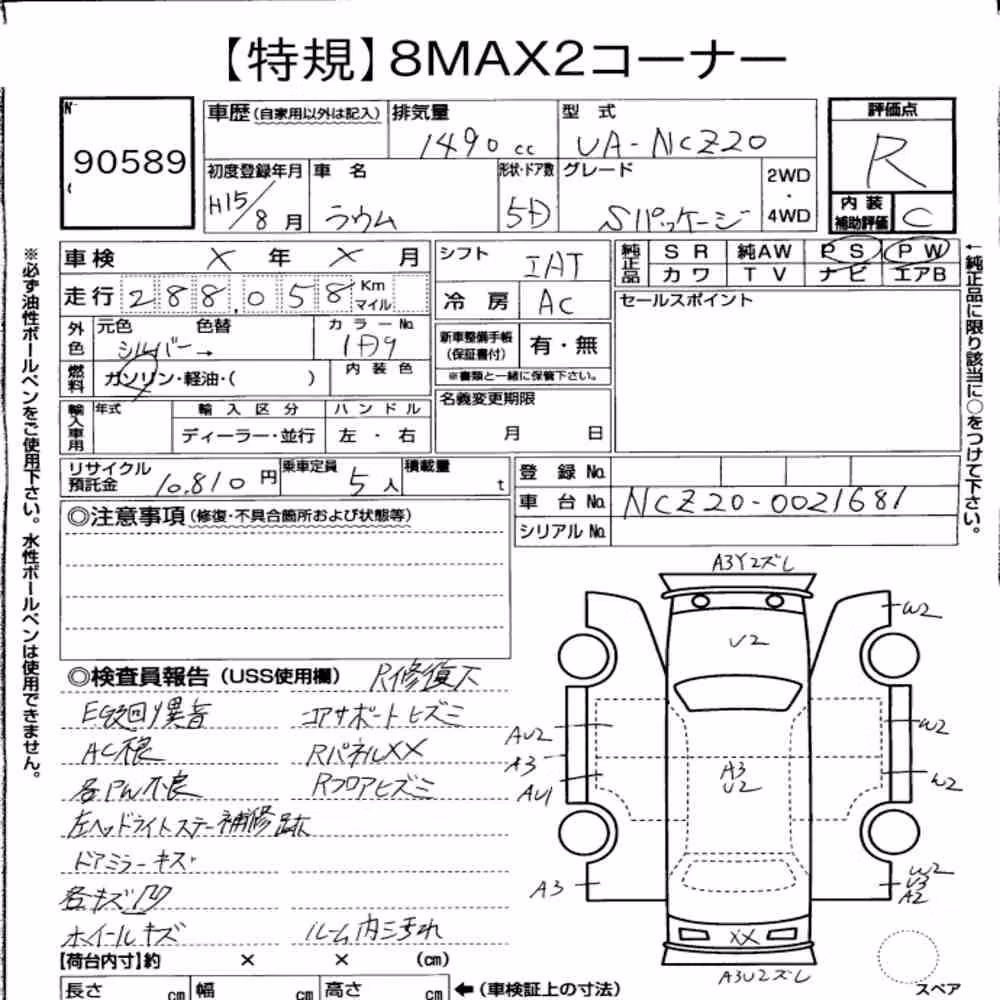 【特規】8MAX2コーナー
No
90589
車歴(自家用以外は記入) 排気量 1490 cc 型式 UA-NCZ20
評価点 R
初度登録年月 H15/8月 車名 ラウム 形状・ドア数 5D グレード Sパッケージ 2WD・4WD
内装補助評価 C
車検 X 年 X 月
走行 288,058 Km マイル
外色 元色 シルバー → 色替 カラーNo. 1F9
燃料 ガソリン・軽油・( ) 内装色
輸入車用 年式 輸入区分 ディーラー・並行 ハンドル 左・右
シフト IAT
冷房 AC
新車整備手帳(保証書付) 有・無
※書類と一緒に保管下さい。
名義変更期限 月 日
純正品 SR 純AW PS PW
カワ TV ナビ エアB
セールスポイント
リサイクル預託金 10,810円 乗車定員 5人 積載量 t
登録No.
車台No. NCZ20-0021681
シリアルNo.
※必ず油性ボールペンをご使用下さい。水性ボールペンは使用できません。
←純正品に限り該当に○をつけて下さい。
◎注意事項(修復・不具合箇所および状態等)
◎検査員報告(USS使用欄) R修復大
コアサポートヒズミ
RパネルXX
RフロアヒズミE
各PW不良
左ヘッドライトステー補修跡
ドアミラーキズ
各キズ凹
ホイールキズ ルーム内汚れ
【荷台内寸】約 × × (cm)
長さ cm 幅 cm 高さ cm ←(車検証上の寸法)
A3Y2ズレ
W2
U2
AU2
W2
A3
A3
U2
AU1
W2
A3
W2
U3
A2
XX
A3U2ズレ
スペア